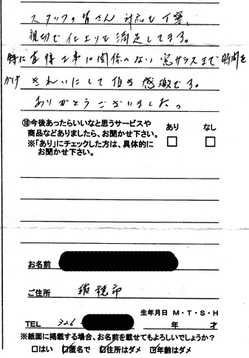 スタッフの皆さん 対応も丁寧、
親切で仕上りも満足してます。
特に直接工事に関係のない窓ガラスまで時間を
かけきれいにして頂き感激です。
ありがとうございました。
⑩今後あったらいいなと思うサービスや
商品などありましたら、お聞かせ下さい。
※「あり」にチェックした方は、具体的に
お聞かせ下さい。
あり なし
お名前
ご住所 瑞穂市
生年月日 M・T・S・H
TEL 326 年 才
※紙面に掲載する場合、お名前を載せてもよろしいでしょうか?
□はい ☑匿名で ☑住所はダメ ☑年齢はダメ